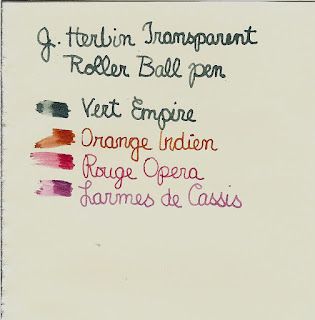 J. Herbin Transparent
Roller Ball pen
Vert Empire
Orange Indien
Rouge Opera
Larmes de Cassis